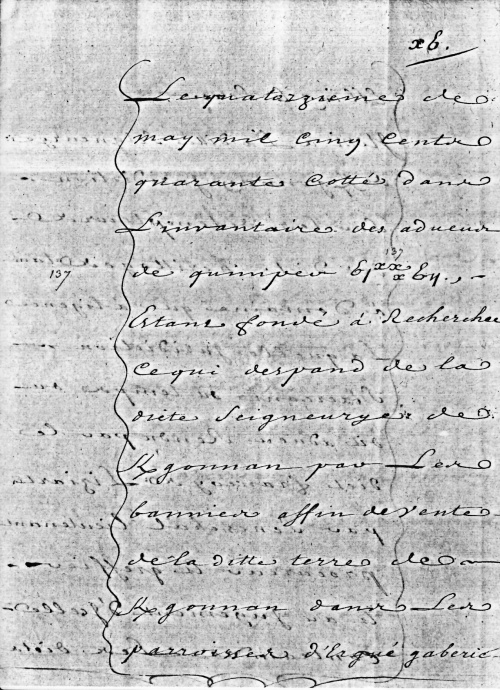 xv.
Le quatorziesme de
may mil cinq centz
quarante cotté dans
L'inventaire des adveus
de quimper
137
137
Estans fondé à Rechercher
ce qui despand de la
dicte Seigneurye de
Kgonnan par Les
bannies affin de vente
de la ditte terre de
Kgonnan dans Les
parroisses d'Ergué gaberic